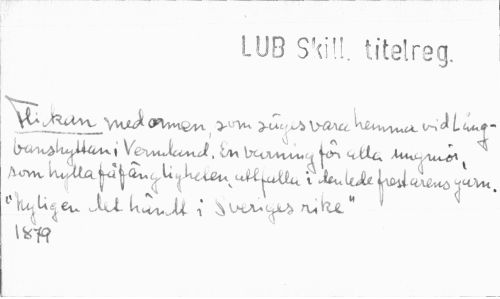 LUB Skill. titelreg.
Flickan med ormen, som säges vara hemma vid Lång-
banshyttan i Vermland. En varning för alla ungmör,
som hylla fåfängligheten, att falla i den lede frestarens garn.
"Nyligen det händt i Sveriges rike"
1879